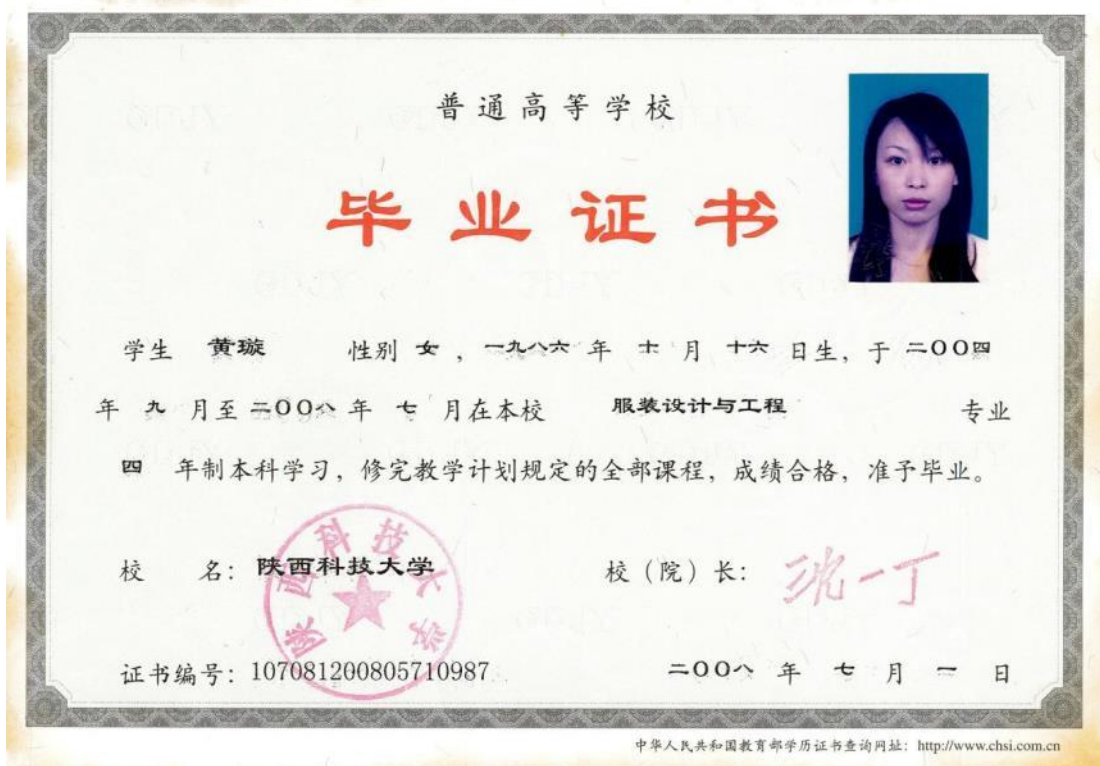 普通高等学校
毕业证书
学生 黄璇 性别 女 ，一九八六 年 十 月 十六 日生，于 二〇〇四
年 九 月至 二〇〇八 年 七 月在本校 服装设计与工程 专业
四 年制本科学习，修完教学计划规定的全部课程，成绩合格，准予毕业。
校 名：陕西科技大学
校（院）长：沈一丁
陕西科技大学
证书编号：107081200805710987
二〇〇八 年 七 月 一 日
中华人民共和国教育部学历证书查询网址：http://www.chsi.com.cn